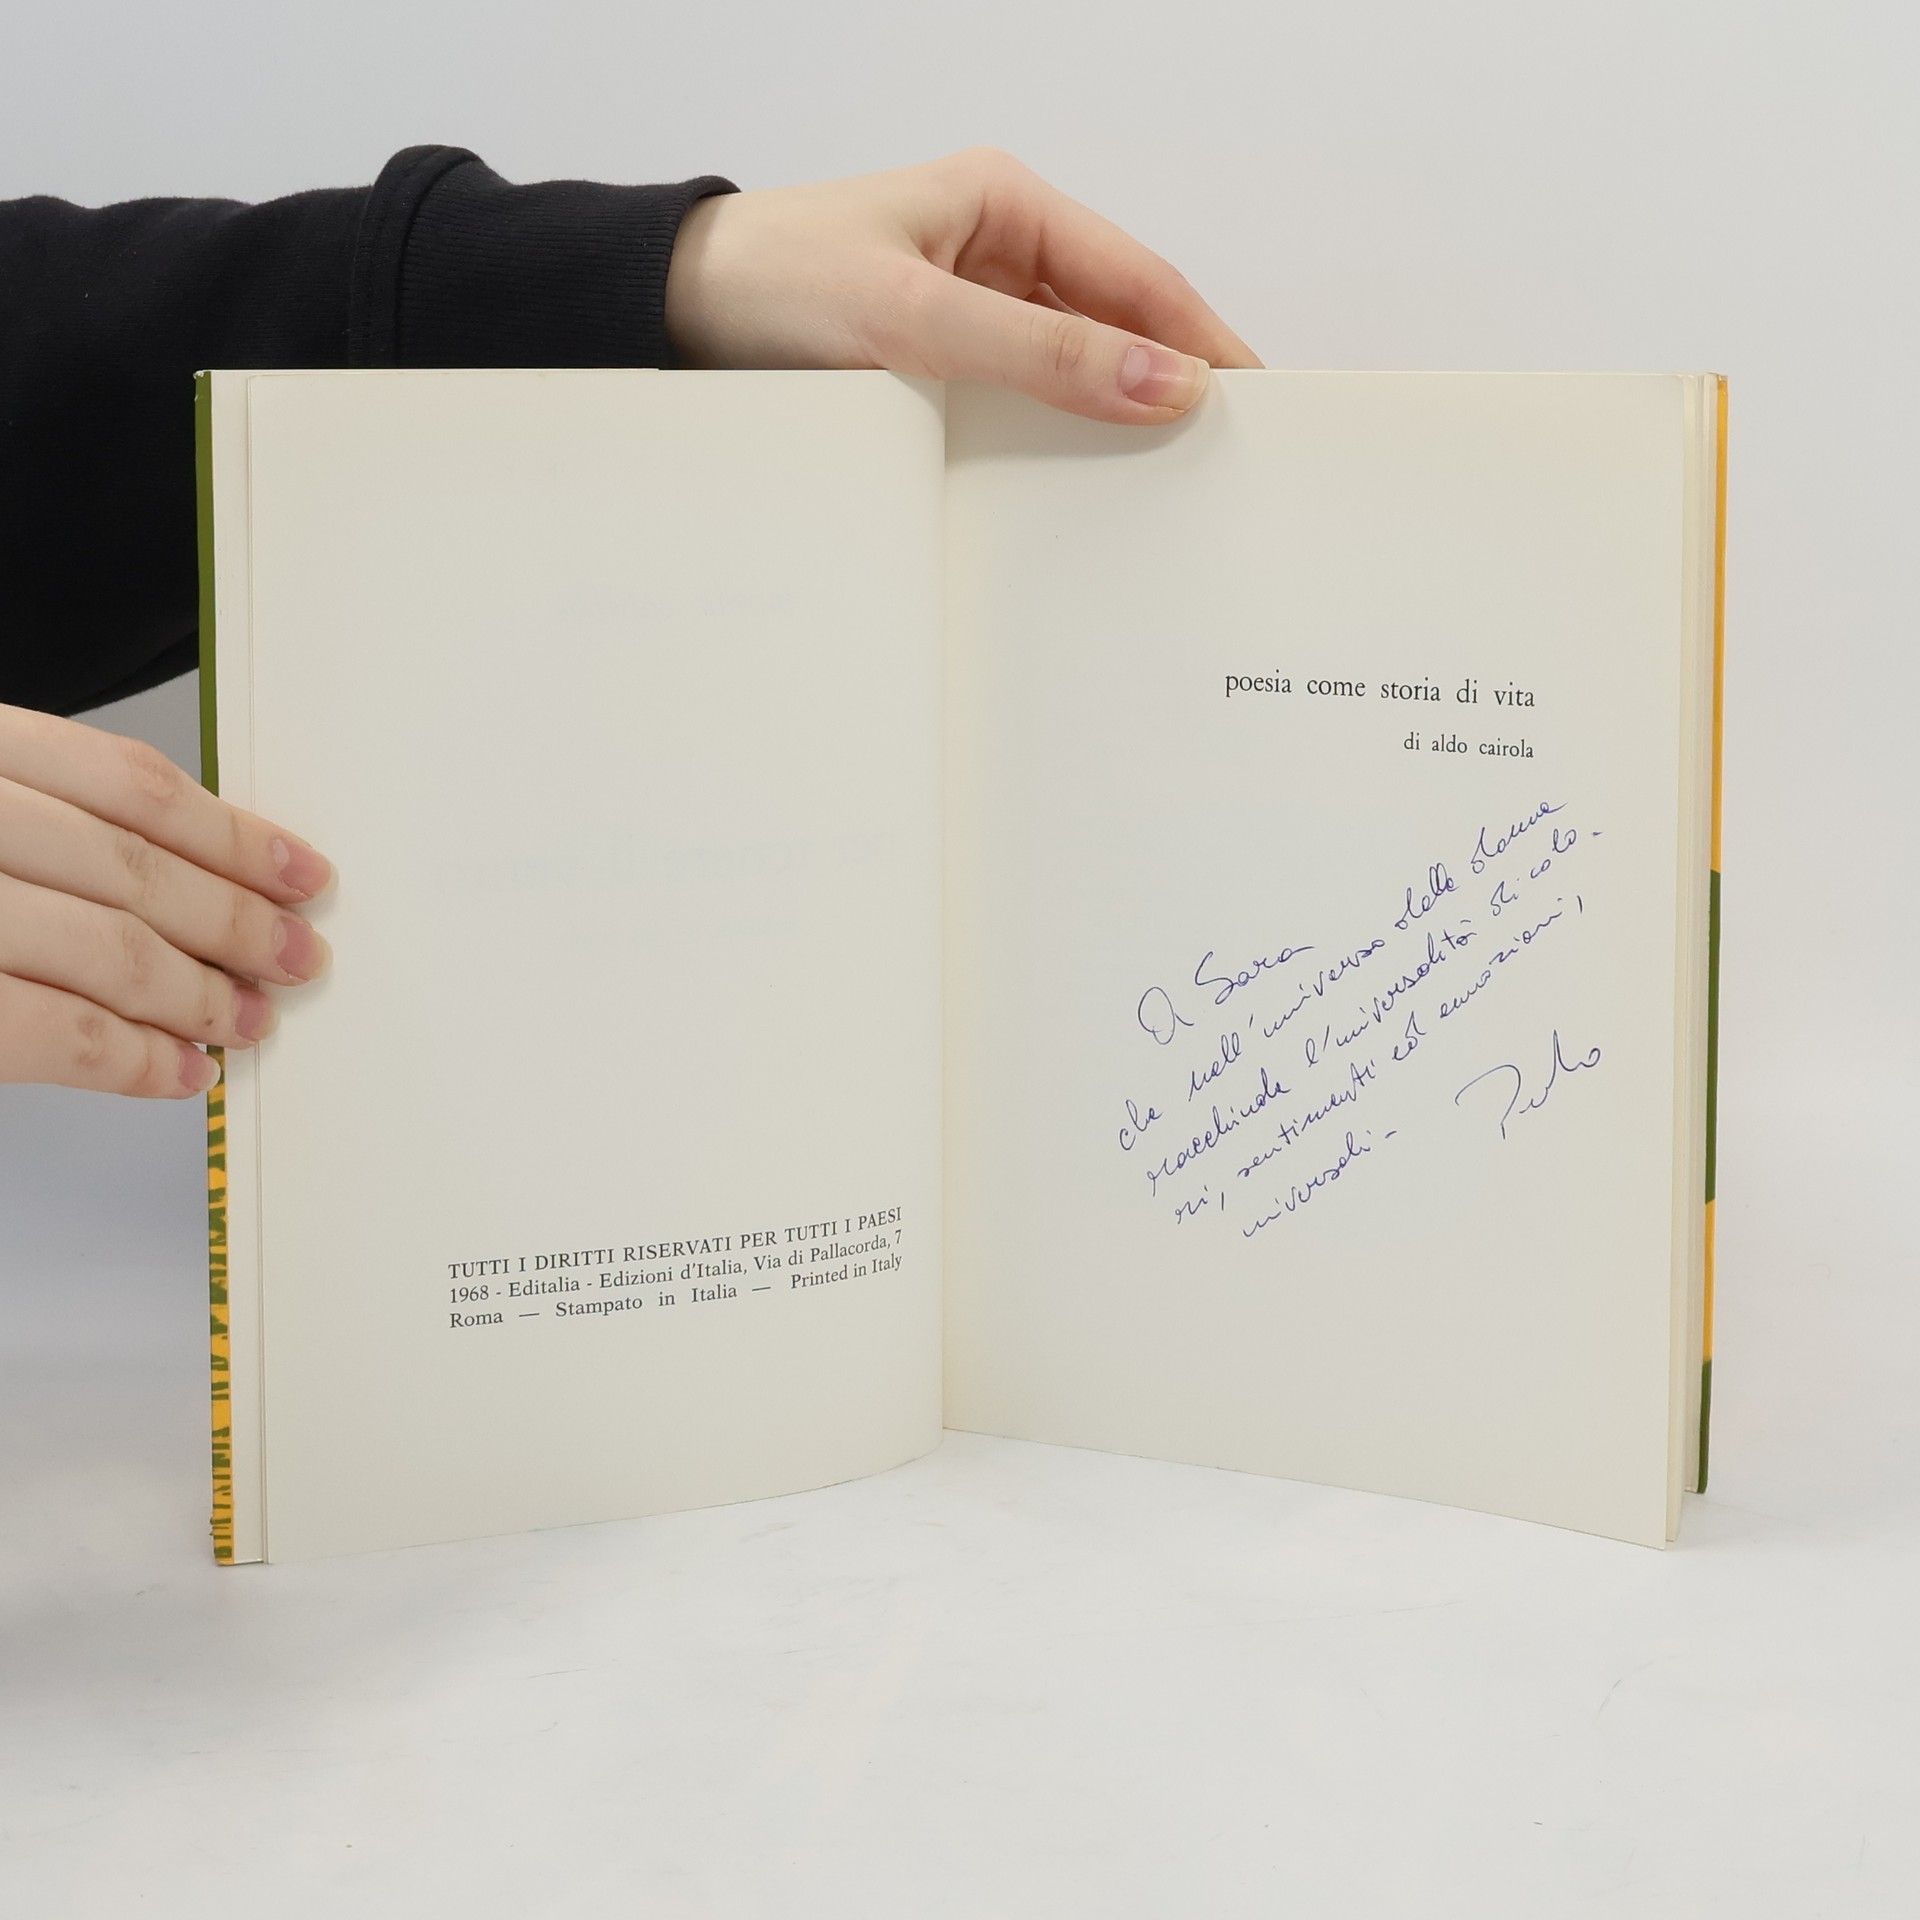 TUTTI I DIRITTI RISERVATI PER TUTTI I PAESI
1968 - Editalia - Edizioni d'Italia, Via di Pallacorda, 7
Roma — Stampato in Italia — Printed in Italy
poesia come storia di vita
di aldo cairola
A Sara
che nell'universo della donna
racchiude l'universalità di colo-
ri, sentimenti ed emozioni,
universali-